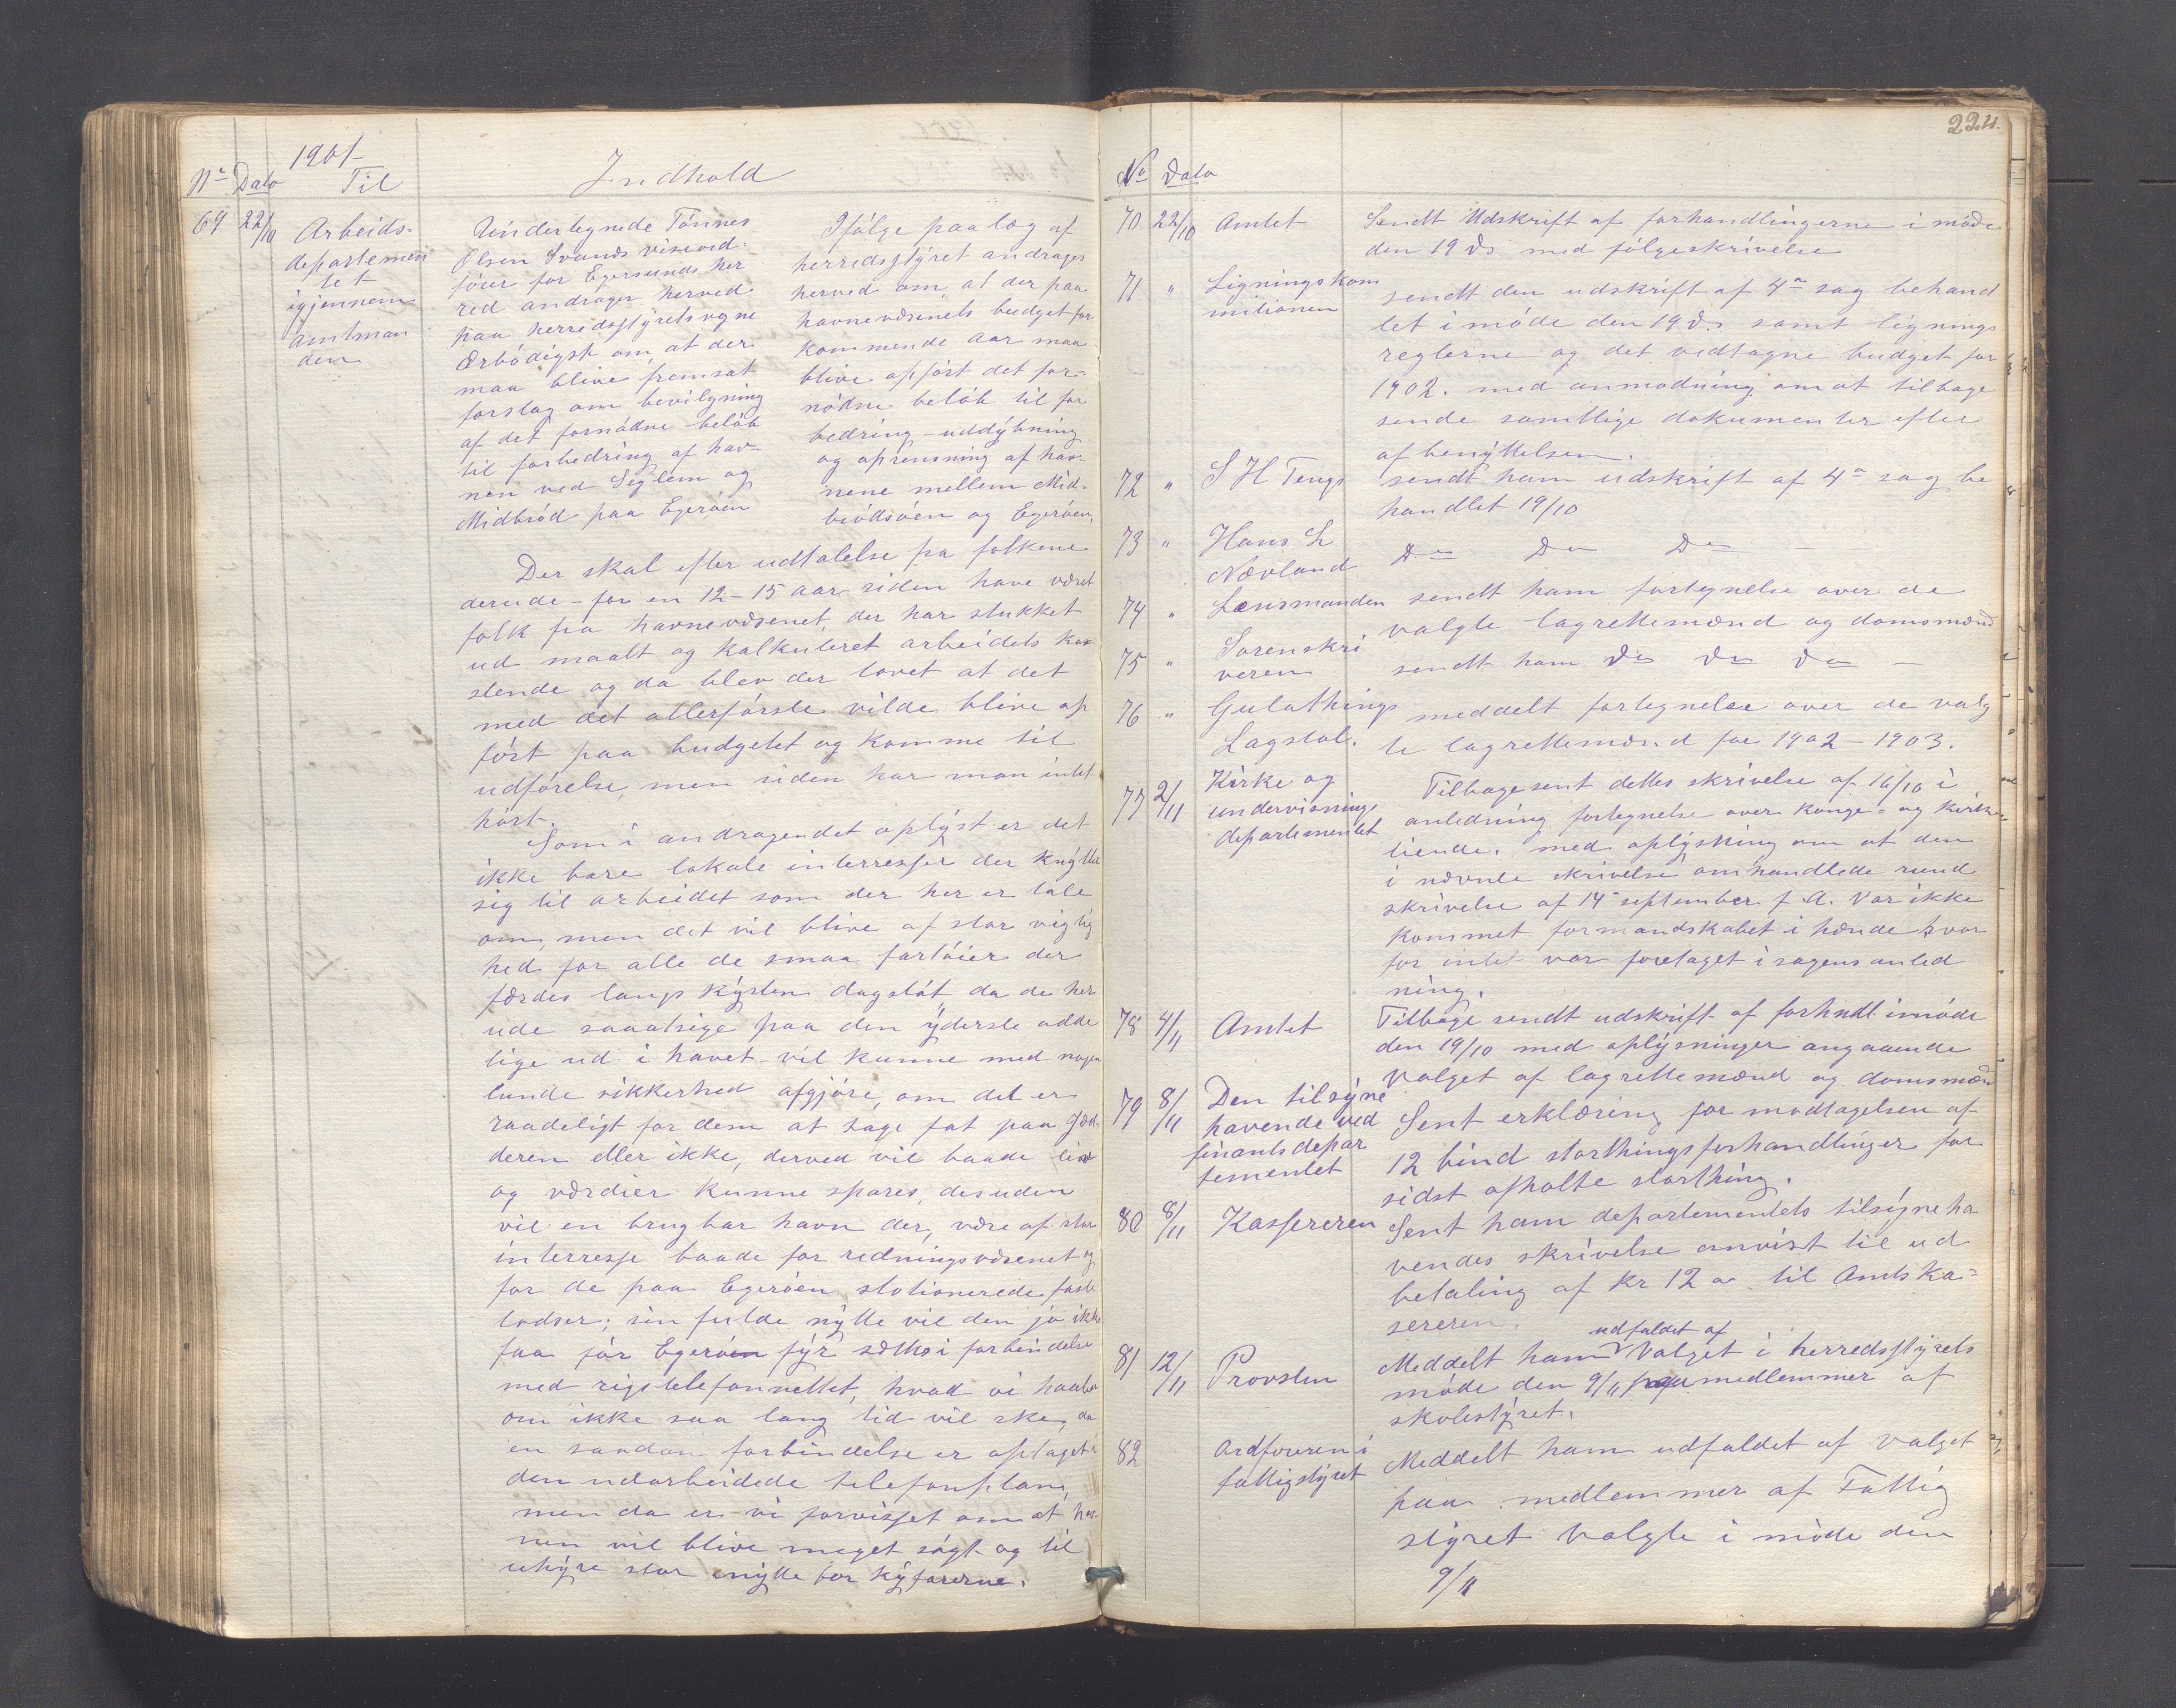 1901
Nr Dato Til Indhold
69 22/10 Arbeids-
departemen
tet
igjennem
amtman
den
Undertegnede Tönnes
Olsen Svands viseord-
förer for Egersunds her
red andrager herved
paa herredsstyrets vegne
Ærbödigst om, at der
maa blive fremsat
forslag om bevilgning
af det fornödne belöb
til forbedring af hav-
nen ved Seglem og
Midbröd paa Egeröen
Ifölge paalæg af
herredsstyret andrages
herved om, at der paa
havnevæsenets budget for
kommende aar maa
blive opfört det for-
nödne belöb til for
bedring - uddybning
og oprensning af hav-
nene mellem Mid-
brödsöen og Egeröen,
Der skal efter udtalelse fra folkene
derude - for en 12-15 aar siden have været
folk fra havnevæsenet, der har stukket
ud maalt og kalkuleret arbeidets kos
stende og da blev der lovet at det
med det allerförste vilde blive op
fört paa budgetet og komme til
udförelse, men siden har man intet
hört.
Som i andragendet oplyst er det
ikke bare lokale interresser der knytter
sig til arbeidet som der her er tale
om, men det vil blive af stor vigtig
hed for alle de smaa fartöier der
færdes langs kysten dagstöt, da de her
ude saaatsige paa den yderste odde
lige ud i havet - vil kunne med nogen
lunde sikkerhed afgjöre, om det er
raadeligt for dem at tage fat paa Jæd-
deren eller ikke, derved vil baade liv
og værdier kunne spares, desuden
vil en brugbar havn der, være af stor
interresse baade for redningsvæsenet og
for de paa Egeröen stationerede faste
lodser; sin fulde nytte vil den jo ikke
faa för Egeröen fyr sættes i forbindelse
med rigstelefonnettet, hvad vi haaber
om ikke saa lang tid vil ske, da
en saadan forbindelse er optaget i
den udarbeidede telefonplan,
men da er vi forvisset om at hav-
nen vil blive meget sögt og til
uhyre stor nytte for kyfarerne.
224.
No Dato
70 22/10 Amtet Sendt Udskrift af forhandlingerne i möde
den 19 ds med fölgeskrivelse
71 " Ligningskom
mitionen
sendt den udskrift af 4a sag behand
let i möde den 19 ds. samt lignings
reglerne og det vedtagne budget for
1902. med anmodning om at tilbage
sende samtlige dokumenter efter
afbenyttelsen.
72 " S H Tengs sendt ham udskrift af 4a sag be
handlet 19/10
73 " Hans L
Nævland
Do Do Do -
74 " Lensmanden sendt ham fortegnelse over de
valgte lagrettemænd og domsmænd
75 " Sorenskri
veren
sendt ham Do Do Do -
76 " Gulathings
Lagstol.
meddelt fortegnelse over de valg
te lagrettemænd for 1902-1903.
77 2/11 Kirke og
undervisnings
departementet
Tilbagesent dettes skrivelse af 16/10 i
anledning fortegnelse over konge- og kirke
tiende. med oplysning om at den
i nævnte skrivelse omhandlede rund
skrivelse af 14 september f. A. var ikke
kommet formandskabet i hænde hvor
for intet var foretaget i sagens anled
ning.
78 4/11 Amtet Tilbage sendt udskrift af forhndl. i möde
den 19/10 med oplysninger angaaende
Valget af lagrettemænd og domsmænd
79 8/11 Den tilsyne
havende ved
finantsdepar
tementet
Sent erklæring for modtagelsen af
12 bind storthingsforhandlinger for
sidst afholte storthing.
80 8/11 Kassereren Sent ham departementets tilsyneha
vendes skrivelse anvist til ud
betaling af kr 12 til Amtska-
sereren.
81 12/11 Provsten Meddelt ham udfaldet af Valget i herredsstyrets
möde den 9/11 paa medlemmer af
skolestyret.
82 Ordföreren i
fattigstyret
Meddelt ham udfaldet af valget
paa medlemmer af Fattig
styret valgte i möde den
9/11